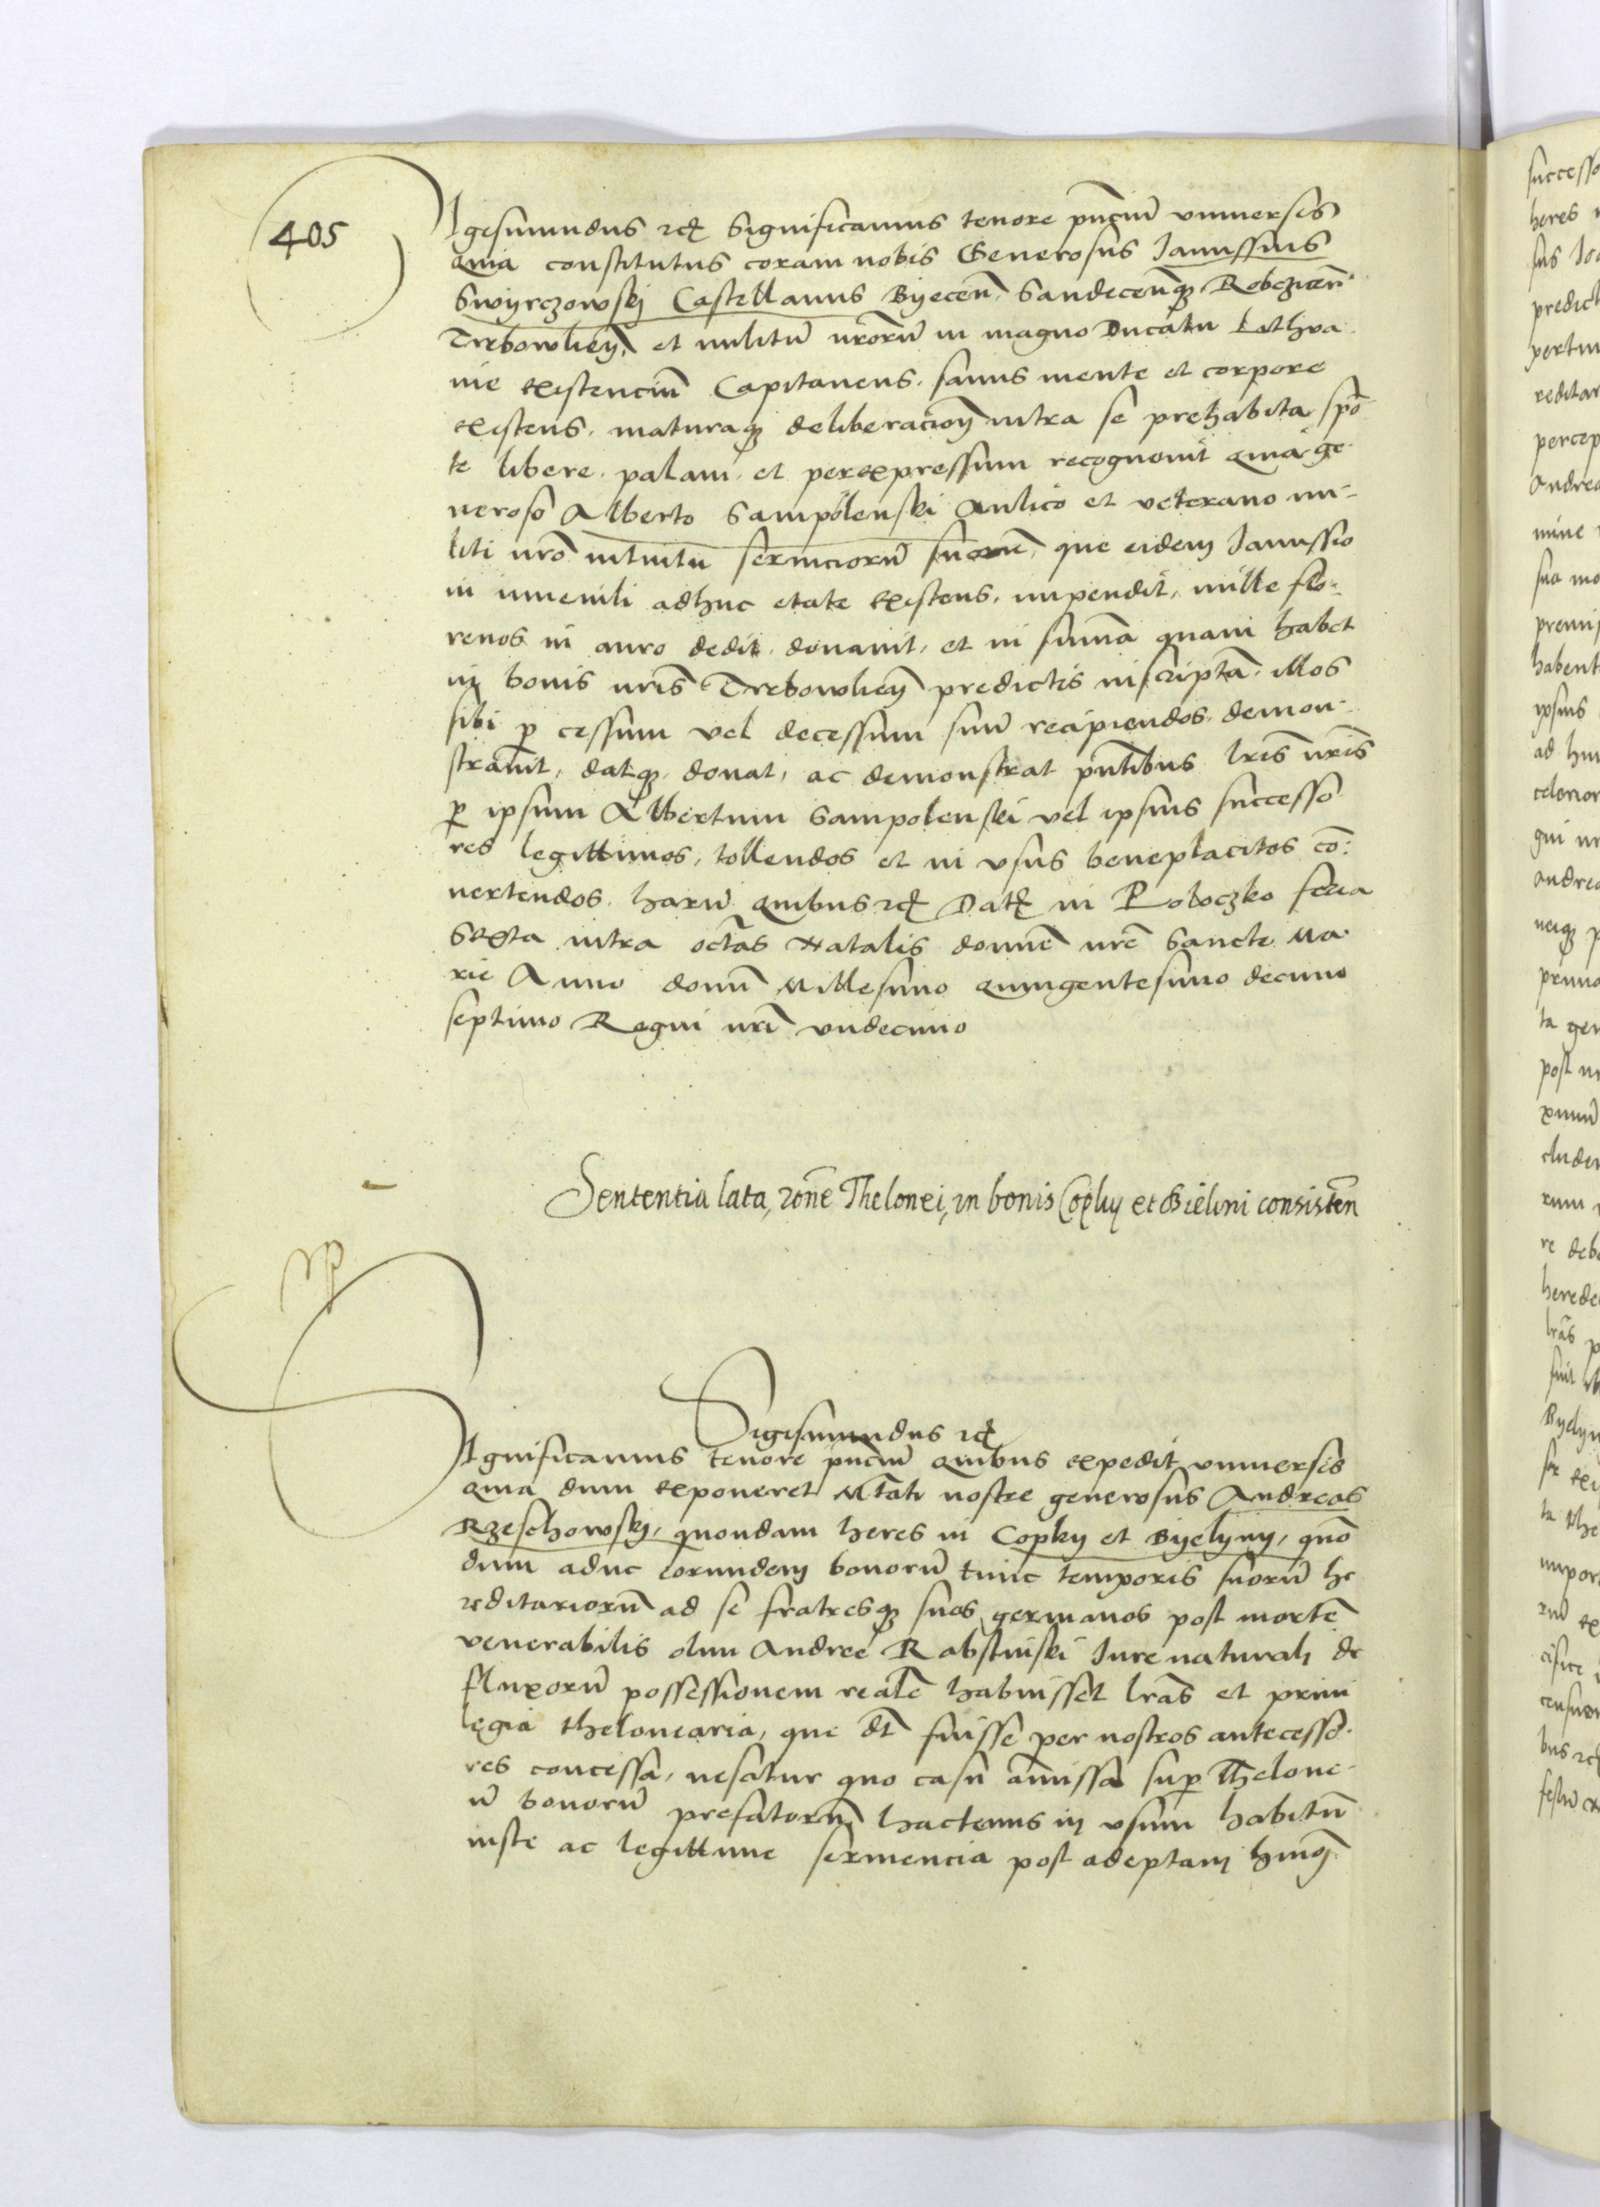 405
Sigismundus etc Significamus tenore pñcium vniuersis
Quia constitutus coram nobis Generosus Janussius
Swyrczowsky Castellanus Byecen̄. Sandecen̄q̄ Robczicen̄.
Trebowlien̄. et militū nrorū in magno Ducatu Lithva
nie existenciū Capitaneus. sanus mente et corpore
existens. maturaq̄ deliberacion̄ intra se prehabita spō
te libere. palam. et per expressum recognouit Quia ge
neroso Alberto Sampolenski Aulico et veterano mi-
liti nrō intuitu seruiciorū suorū, que eidem Janussio
in iuuenili adhuc etate existens. impendit, mille flo-
renos in auro dedit. donauit, et in summa quam habet
in bonis nris Trebowlien̄ predictis inscriptā. illos
sibi p cessum vel decessum suū recipiendos. demon-
strauit, datq̄. donat, ac demonstrat pntibus lris nris
p ipsum Albertum Sampolenski vel ipsius successo
res legittimos, tollendos et in vsus beneplacitos cō-
uertendos. harū quibus etc Dat̄ in Poloczko feria
Sexta intra octās Natalis domnē nrē Sancte Ma-
rie Anno domī Millesimo Quingentesimo decimo
septimo Regni nri vndecimo
Sententia lata, rōne Thelonei, in bonis Copky et Bielini consisten̄
Sigismundus etc
Significamus tenore pñcium Quibus expedit vniuersis
Quia dum exponeret Mtāti nostre generosus Andreas
Rzeschowsky, quondam heres in Copky et Byelyny, quō
dum aduc eorundem bonorū tunc temporis suorū he
reditariorū ad se fratresq̄ suos germanos post mortē
venerabilis olim Andree Rabstinski Jure naturali de
fluxorū possessionem realē habuisset lrās et priui
legia thelonearia, que dt fuisse per nostros antecesso-
res concessa, nescitur quo casu amissa sup Thelone-
ū bonorū prefatorū hactenus in vsum habitū
iuste ac legittime seruiencia post adeptam hmōi